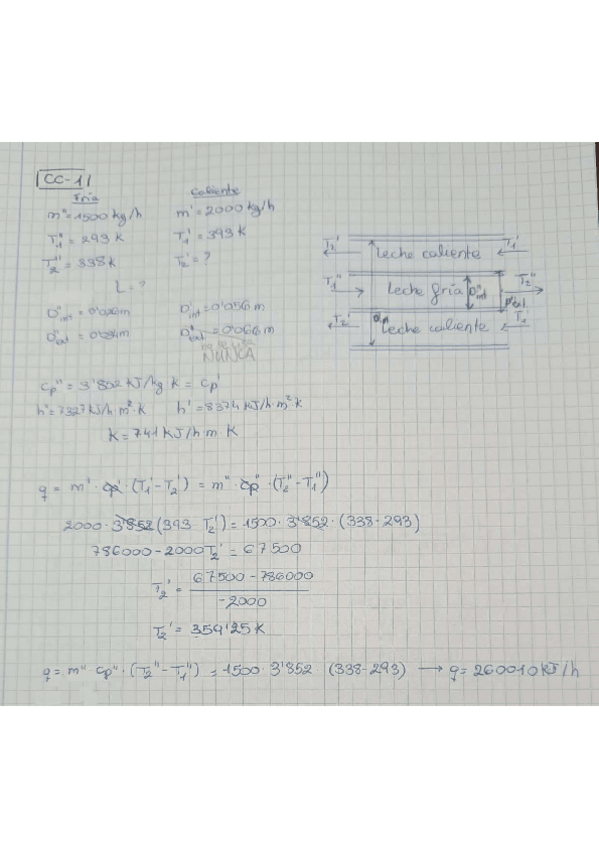 CC-1
Fría Caliente
m''=1500 kg/h m'=2000 kg/h
T₁''=293 K T₁'=393 K
T₂''=338 K T₂'=?
L=?
D''int=0'026m D'int=0'056m
D''ext= D''ext=0'066m
NUNCA
T₂' leche caliente T₁'
T₁'' leche fría D''int D''ext T₂''
T₂' leche caliente T₁'
Cp''=3'852 KJ/kg K = Cp'
h'=7327KJ/h·m²·K h'=8374 KJ/h·m²·K
K=741 KJ/h m·K
q = m'·Cp'·(T₁'-T₂') = m''·Cp''·(T₂''-T₁'')
2000·3'852(393 T₂')=1500·3'852·(338-293)
786000-2000T₂'=67500
T₂'= 67500-786000
-2000
T₂'=359'25K
q= m'' Cp''·(T₂''-T₁'')=1500·3'852·(338-293) → q=260010KJ/h